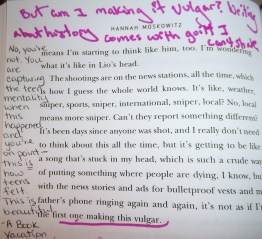 But am I making it vulgar? Writing
about history comes with guilt I
can't shake
HANNAH MOSKOWITZ
No, you're
not. You
are
capturing
the teen
mentality
when
this
happened
and
you're
on point-
this is
how
teens
felt.
This is
beautiful
-A Book
Vacation
means I'm starting to think like him, too. I'm wondering
what it's like in Lio's head.
The shootings are on the news stations, all the time, which
is how I guess the whole world knows. It's like, weather,
sniper, sports, sniper, international, sniper, local? No, local
means more sniper. Can't they report something different?
It's been days since anyone was shot, and I really don't need
to think about this all the time, but it's getting to be like
a song that's stuck in my head, which is such a crude way
of putting something where people are dying, I know, but
with the news stories and ads for bulletproof vests and m
father's phone ringing again and again, it's not as if I'm
the first one making this vulgar.